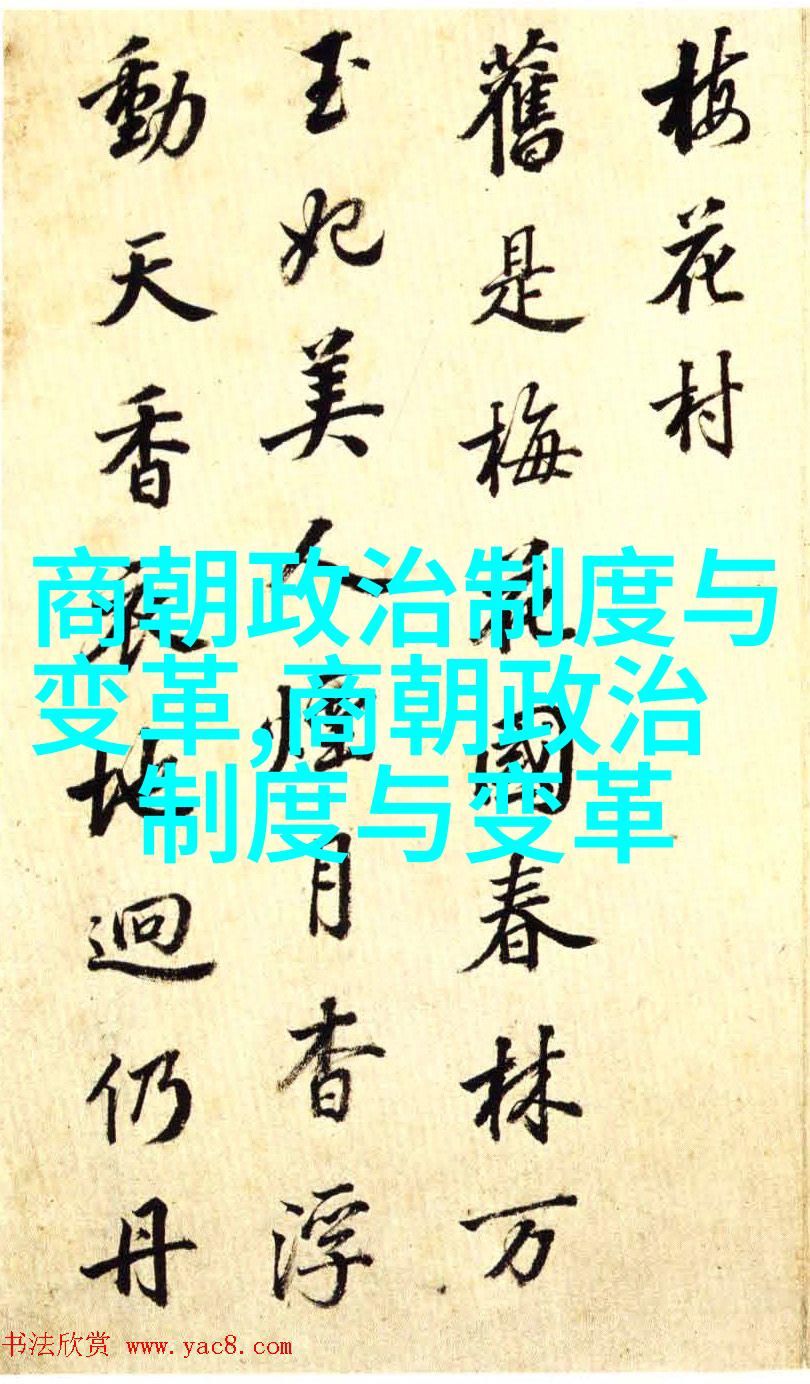 梅花村
舊是梅花國春林万
玉妃美人煙月杳浮
動天香地迥仍丹
商朝政治制度与
变革,商朝政治
制度与变革
书法欣赏 www.yac8.com